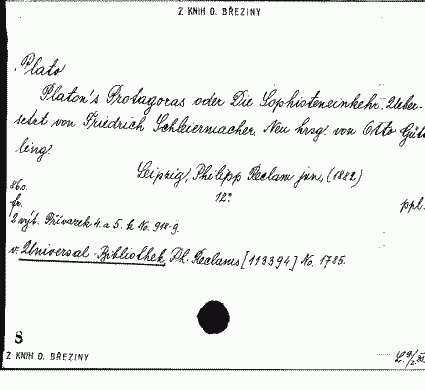 Z KNIH O. BŘEZINY
Plato
Platon's Protagoras oder Die Sophisteneinkehr. Ueber-
setzt von Friedrich Schleiermacher. Neu hrsg. von Otto Güth-
ling
Leipzig, Philipp Reclam jun. (1882)
86 o.
12°
ppl.
fr.
2 výt. Přívazek 4. a 5. k No.
v: Universal-Bibliothek, Ph. Reclams [113394] No. 1785.
8
Z KNIH O. BŘEZINY